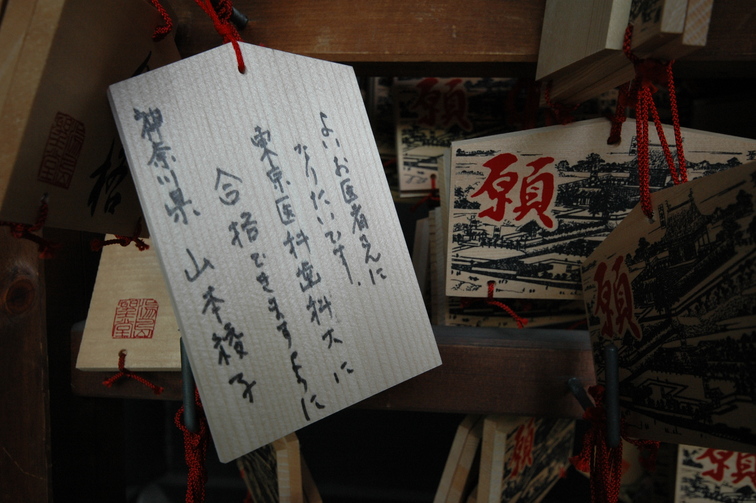 よいお医者さんに
なりたいです。
東京医科歯科大に
合格できますように
神奈川県 山本綾子
願
願
願
願
湯島聖堂